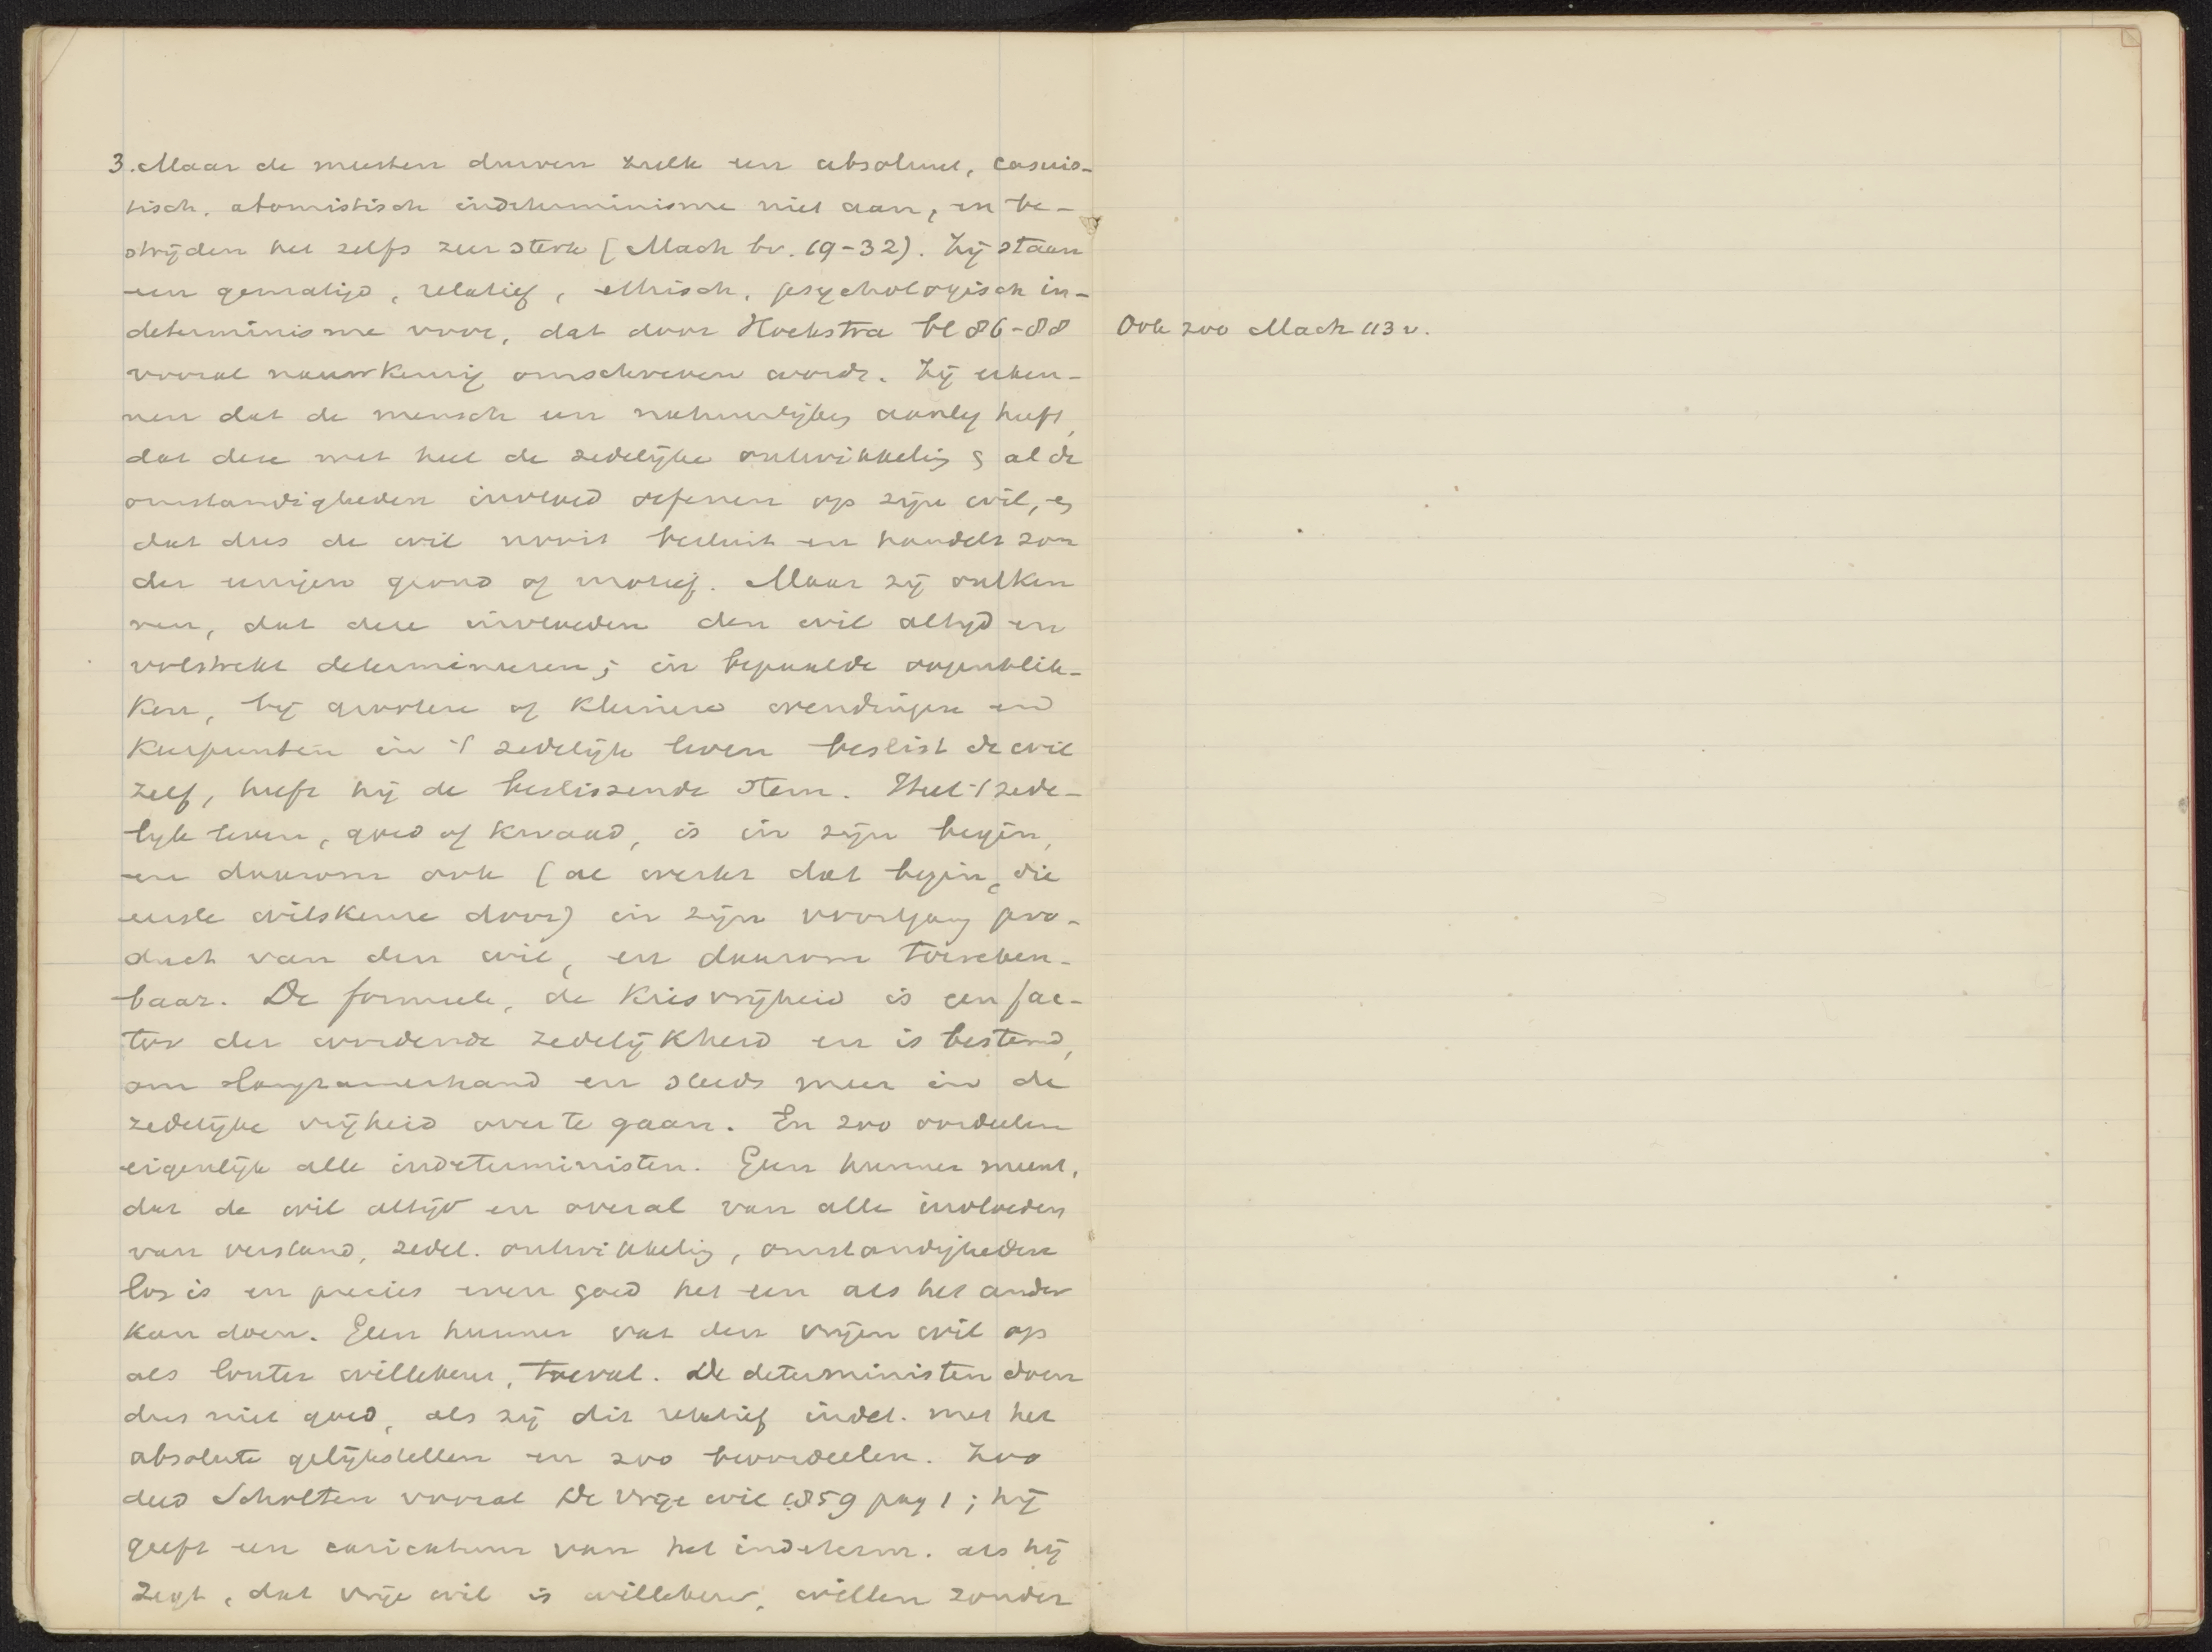 3. Maar de meesten durven zulk een absoluut, casuis-
tisch, atomistisch indeterminisme niet aan, en be-
strijden het zelfs zeer sterk (Mach bv. 19-32). Zij staan
een gematigd, relatief, ethisch, psychologisch in-
determinisme voor, dat door Hoekstra bl 86-88
vooral nauwkeurig omschreven wordt. Zij erken-
nen dat de mensch een natuurlijken aanleg heeft,
dat deze met heel de zedelijke ontwikkeling & al de
omstandigheden invloed oefenen op zijn wil, en
dat dus de wil nooit besluit en handelt zon
der eenigen grond of motief. Maar zij ontken
nen, dat deze invloeden den wil altijd en
volstrekt determineeren; in bepaalde oogenblik-
ken, bij grootere of kleinere wendingen en
keerpunten in 't zedelijk leven beslist de wil
zelf, heeft hij de beslissende stem. Heel 't zede-
lijk leven, goed of kwaad, is in zijn begin,
en daarom ook (al werkt dat begin, die
eerste wilskeuze door) in zijn voortgang pro-
duct van den wil, en daarom toereken-
baar. De formeele, de kiesvrijheid is een fac-
tor der wordende zedelijkheid en is bestemd,
om langzamerhand en steeds meer in de
zedelijke vrijheid over te gaan. En zoo oordeelen
eigenlijk alle indeterministen. Geen hunner meent,
dat de wil altijd en overal van alle invloeden
van verstand, zedel. ontwikkeling, omstandigheden
los is en precies even goed het een als het ander
kan doen. Geen hunner vat den vrijen wil op
als louter willekeur, toeval. De deterministen doen
dus niet goed, als zij dit relatief indet. met het
absolute gelijkstellen en zoo beoordeelen. Zoo
deed Scholten vooral De vrije wil 1859 pag 1; hij
geeft een caricatuur van het indeterm. als hij
zegt, dat vrije wil is willekeur, willen zonder
Ook zoo Mach 113 v.